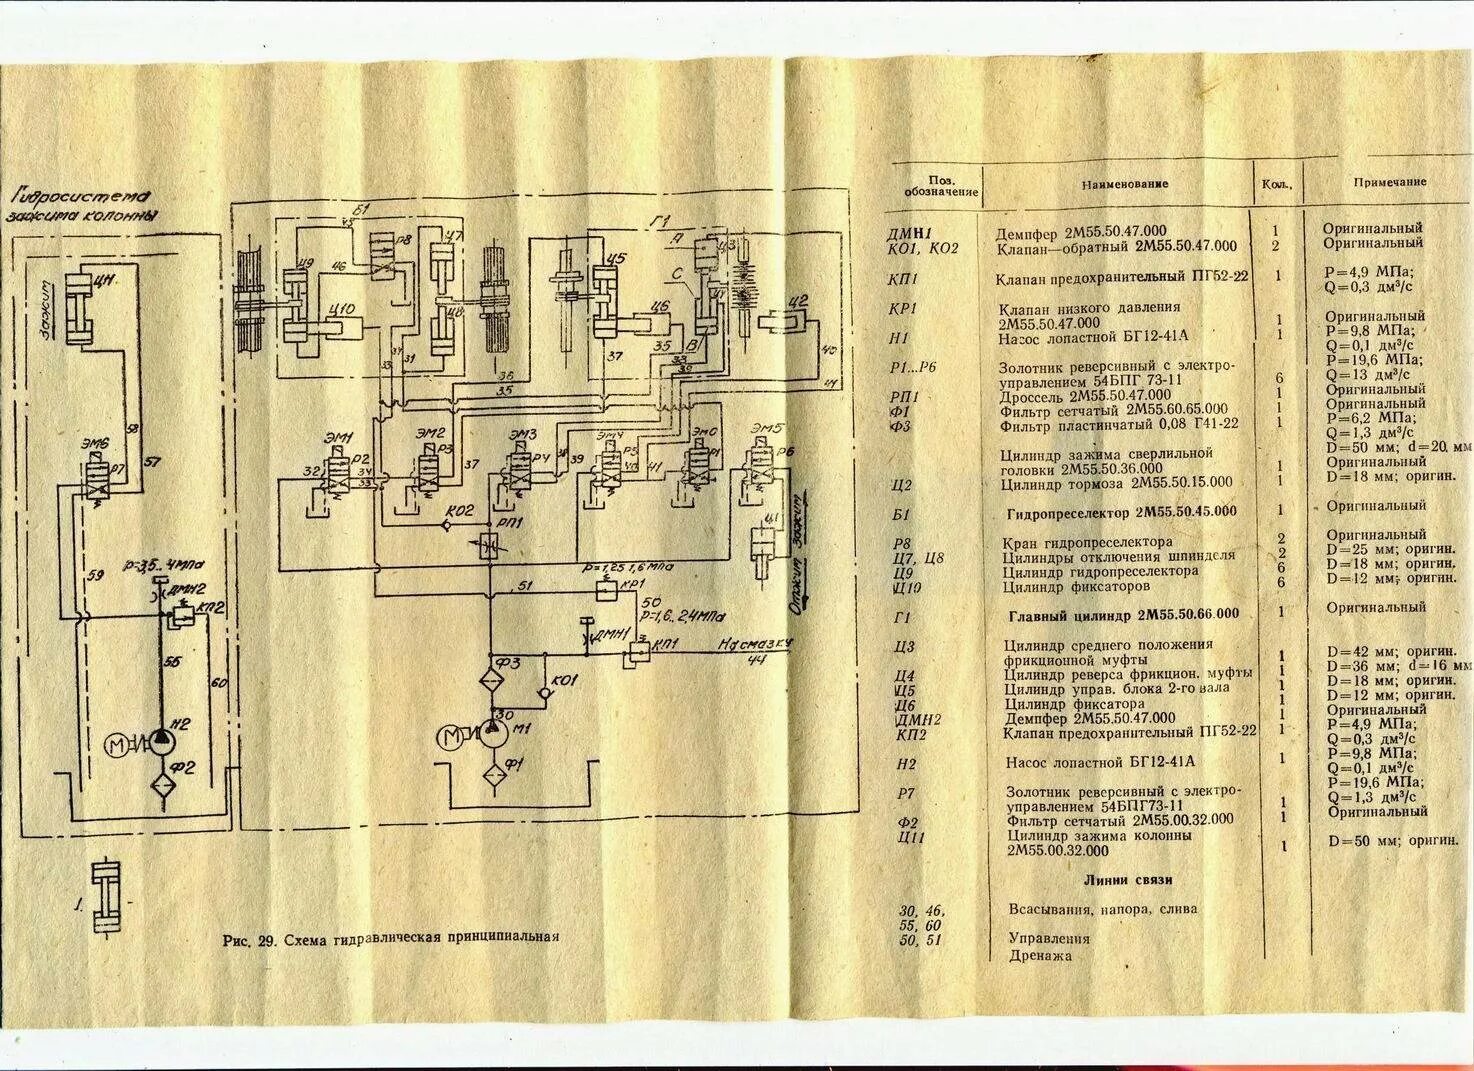 Гидросистема
зажима колонны
ЗАЖИМ
58
57
ЭМ6
Р7
59
Р=3,5..4МПа
ДМН2
КП2
55
60
Н2
М
Ф2
1.
Б1
45
Р8
Ц7
Ц9
46
Ц10
Ц8
33
34
31
36
35
Г1
А
Ц5
С
Ц3
Ц6
35
В
37
33
39
Ц2
40
41
ЭМ1
ЭМ2
ЭМ3
ЭМ4
ЭМ0
ЭМ5
32
Р2
34
33
Р3
37
Р4
38
39
Р5
40
41
Р1
Р6
КО2
РП1
Ц1
Отжим Зажим
Р=1,25 1,6 МПа
51
КР1
50
Р=1,6..2,4МПа
ДМН1
КП1
На смазку
44
Ф3
КО1
30
М
М1
Ф1
Рис. 29. Схема гидравлическая принципиальная
Поз. обозначение Наименование Кол., Примечание
ДМН1 Демпфер 2М55.50.47.000 1 Оригинальный
КО1, КО2 Клапан—обратный 2М55.50.47.000 2 Оригинальный
КП1 Клапан предохранительный ПГ52-22 1 Р=4,9 МПа;
Q=0,3 дм³/с
КР1 Клапан низкого давления
2М55.50.47.000 1 Оригинальный
Н1 Насос лопастной БГ12-41А 1 Р=9,8 МПа;
Q=0,1 дм³/с
Р1...Р6 Золотник реверсивный с электро- Р=19,6 МПа;
управлением 54БПГ 73-11 6 Q=13 дм³/с
РП1 Дроссель 2М55.50.47.000 1 Оригинальный
Ф1 Фильтр сетчатый 2М55.60.65.000 1 Оригинальный
Ф3 Фильтр пластинчатый 0,08 Г41-22 1 Р=6,2 МПа;
Q=1,3 дм³/с
Цилиндр зажима сверлильной D=50 мм; d=20 мм
головки 2М55.50.36.000 1 Оригинальный
Ц2 Цилиндр тормоза 2М55.50.15.000 1 D=18 мм; оригин.
Б1 Гидропреселектор 2М55.50.45.000 1 Оригинальный
Р8 Кран гидропреселектора 2 Оригинальный
Ц7, Ц8 Цилиндры отключения шпинделя 2 D=25 мм; оригин.
Ц9 Цилиндр гидропреселектора 6 D=18 мм; оригин.
Ц10 Цилиндр фиксаторов 6 D=12 мм; оригин.
Г1 Главный цилиндр 2М55.50.66.000 1 Оригинальный
Ц3 Цилиндр среднего положения
фрикционной муфты 1 D=42 мм; оригин.
Ц4 Цилиндр реверса фрикцион. муфты 1 D=36 мм; d=16 мм
Ц5 Цилиндр управ. блока 2-го вала 1 D=18 мм; оригин.
Ц6 Цилиндр фиксатора 1 D=12 мм; оригин.
ДМН2 Демпфер 2М55.50.47.000 1 Оригинальный
КП2 Клапан предохранительный ПГ52-22 1 Р=4,9 МПа;
Q=0,3 дм³/с
Н2 Насос лопастной БГ12-41А 1 Р=9,8 МПа;
Q=0,1 дм³/с
Р7 Золотник реверсивный с электро- Р=19,6 МПа;
управлением 54БПГ73-11 1 Q=1,3 дм³/с
Ф2 Фильтр сетчатый 2М55.00.32.000 1 Оригинальный
Ц11 Цилиндр зажима колонны
2М55.00.32.000 1 D=50 мм; оригин.
Линии связи
30, 46, Всасывания, напора, слива
55, 60
50, 51 Управления
Дренажа